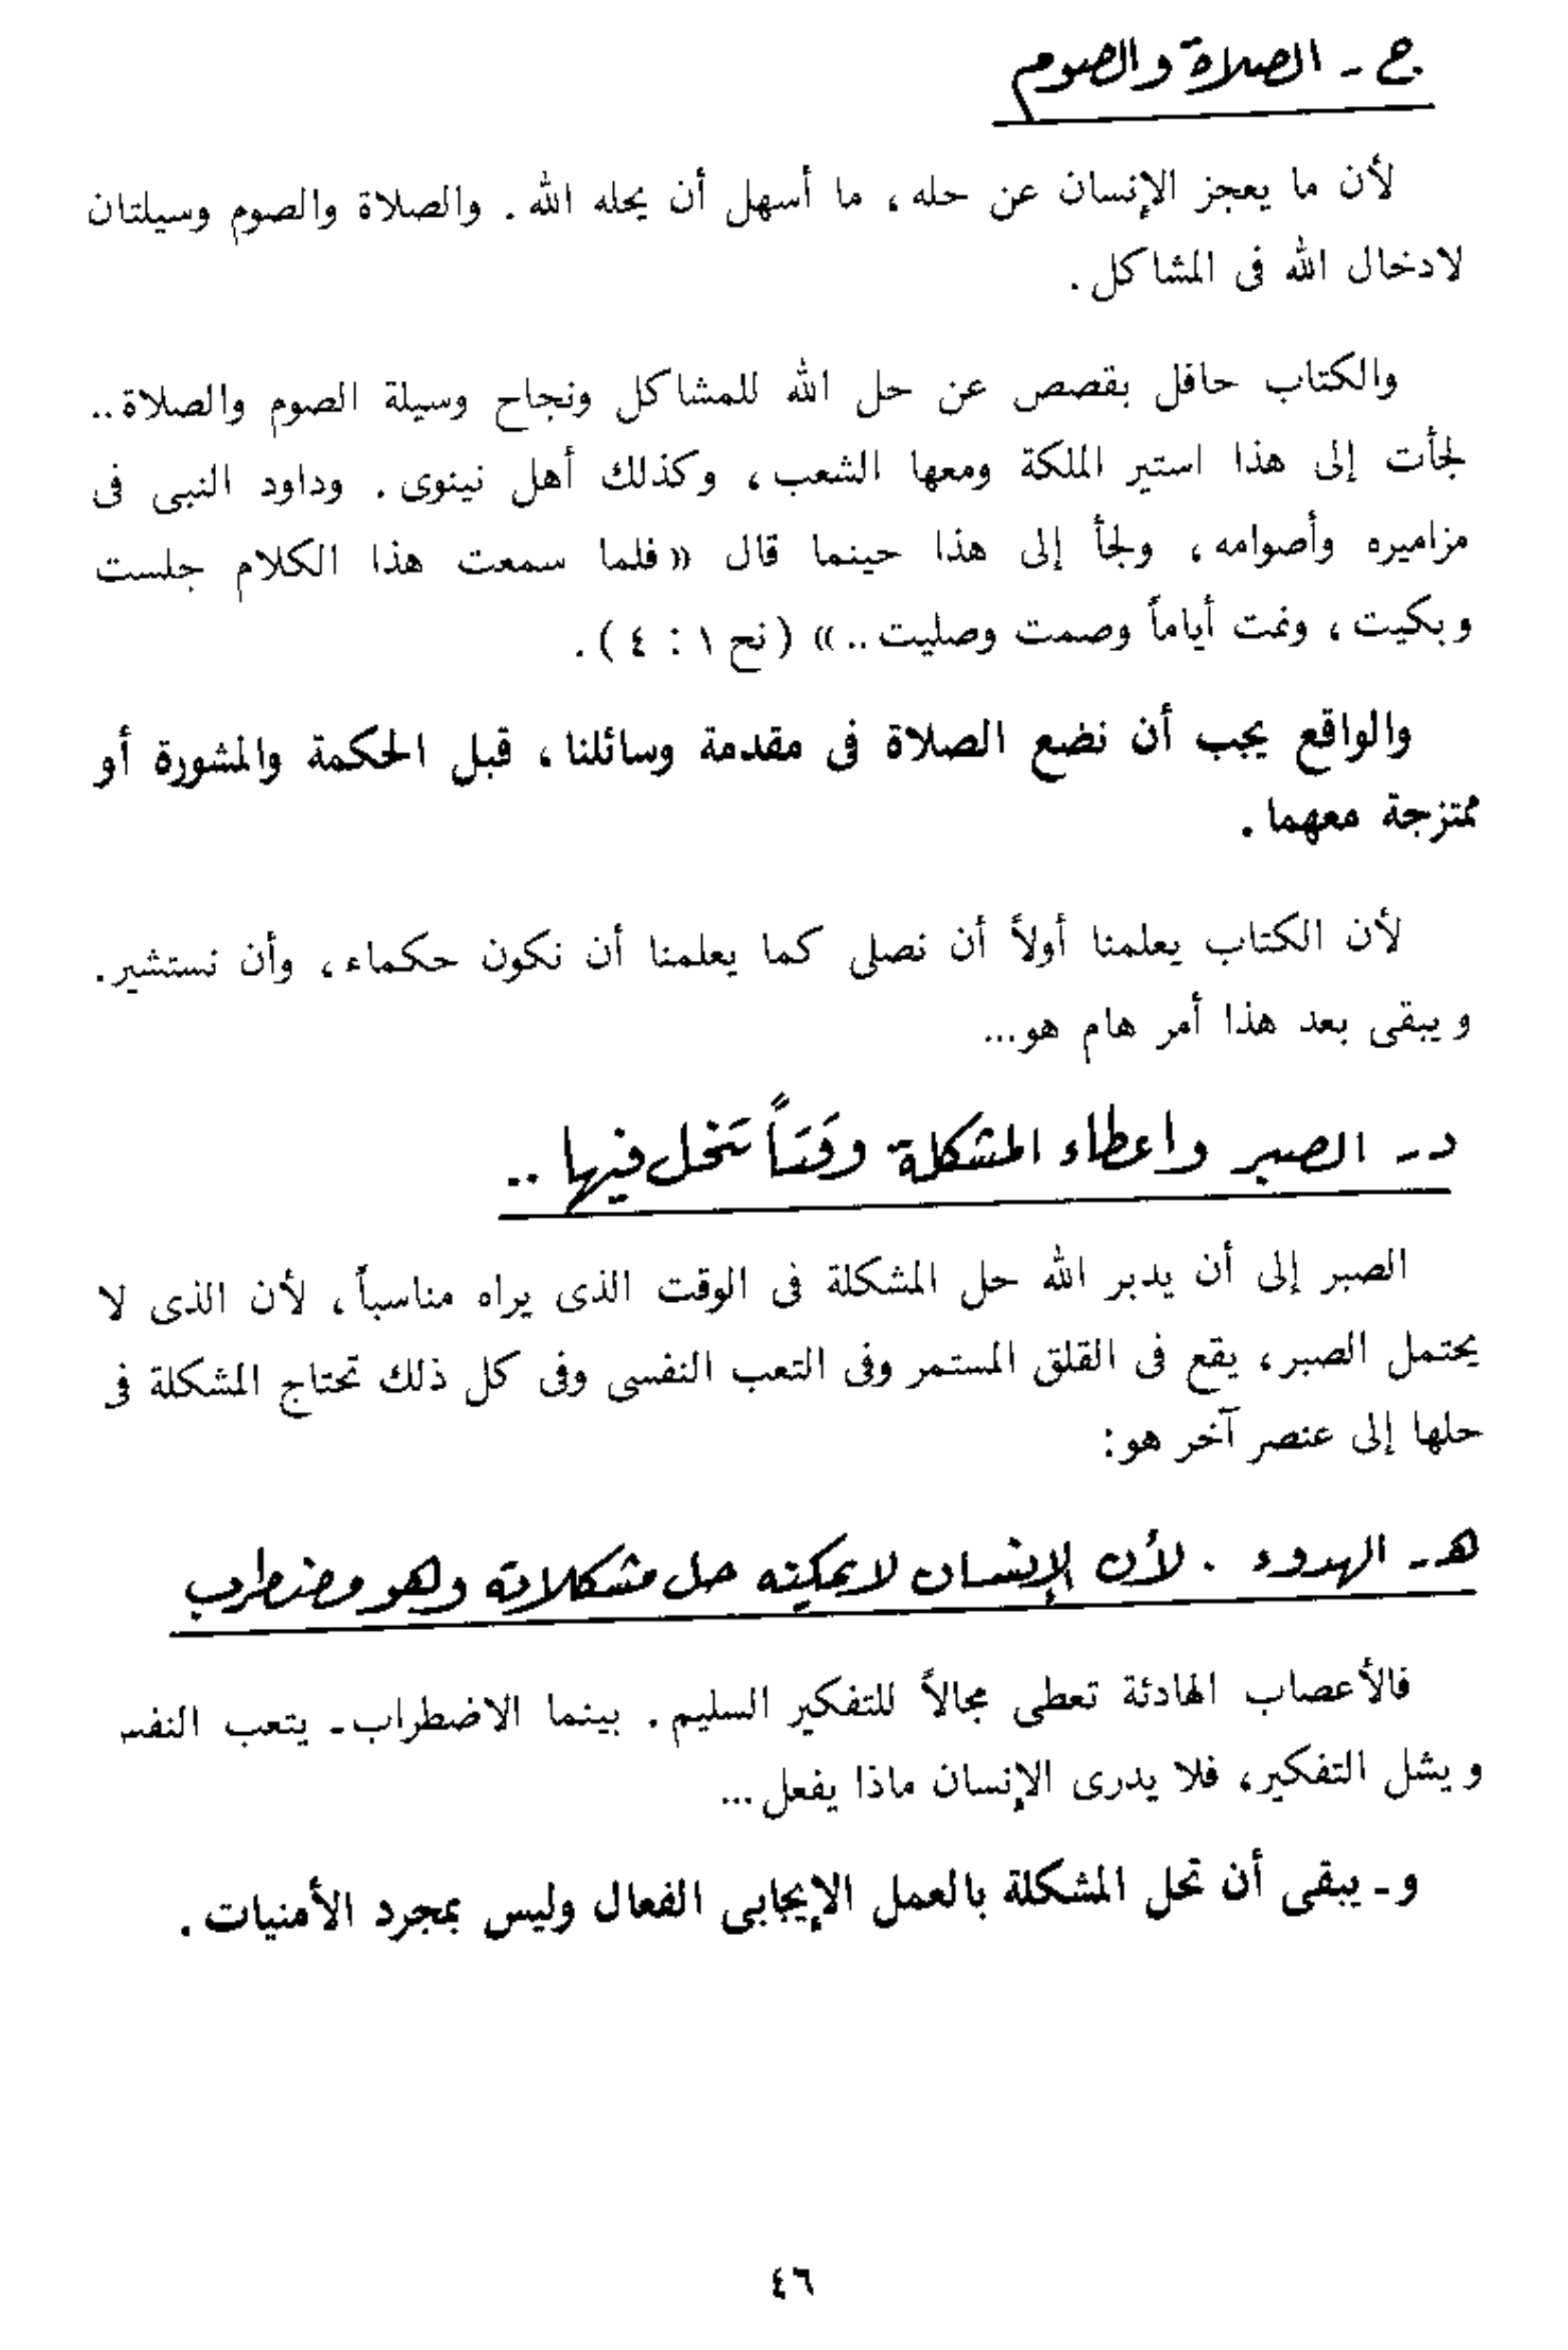 ج - الصلاة والصوم
لأن ما يعجز الإنسان عن حله، ما أسهل أن يحله الله. والصلاة والصوم وسيلتان
لادخال الله فى المشاكل.
والكتاب حافل بقصص عن حل الله للمشاكل ونجاح وسيلة الصوم والصلاة..
لجأت إلى هذا استير الملكة ومعها الشعب، وكذلك أهل نينوى. وداود النبى فى
مزاميره وأصوامه، ولجأ إلى هذا حينما قال «فلما سمعت هذا الكلام جلست
وبكيت، ونمت أياماً وصمت وصليت..» (نح ١ : ٤).
والواقع يجب أن نضع الصلاة فى مقدمة وسائلنا، قبل الحكمة والمشورة أو
ممتزجة معهما.
لأن الكتاب يعلمنا أولاً أن نصلى كما يعلمنا أن نكون حكماء، وأن نستشير.
ويبقى بعد هذا أمر هام هو...
د - الصبر واعطاء المشكلة وقتاً تنحل فيها ..
الصبر إلى أن يدبر الله حل المشكلة فى الوقت الذى يراه مناسباً، لأن الذى لا
يحتمل الصبر، يقع فى القلق المستمر وفى التعب النفسى وفى كل ذلك تحتاج المشكلة فى
حلها إلى عنصر آخر هو:
هـ - الهدوء . لأن الإنسان لا يمكنه حل مشكلاته وهو مضطرب
فالأعصاب الهادئة تعطى مجالاً للتفكير السليم. بينما الاضطراب - يتعب النفس
ويشل التفكير، فلا يدرى الإنسان ماذا يفعل...
و - يبقى أن تحل المشكلة بالعمل الإيجابى الفعال وليس بمجرد الأمنيات.
٤٦